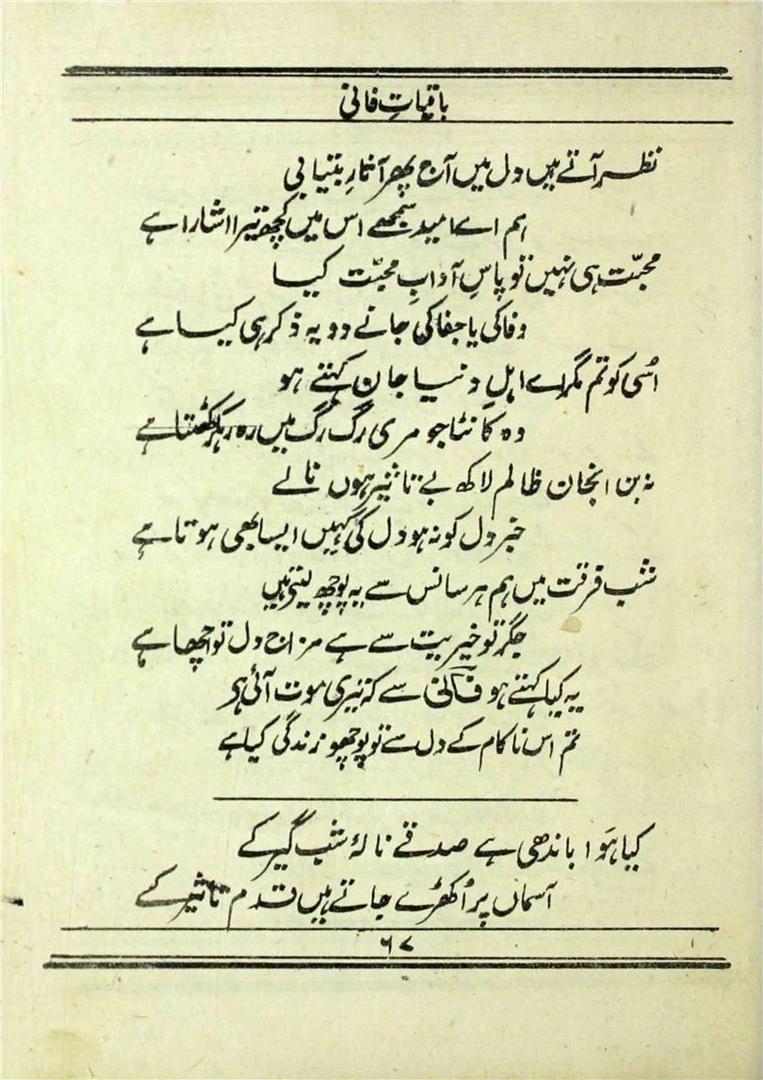 باقیاتِ فانی
نظر آتے ہیں دل میں آج پھر آثارِ بیتابی
ہم اے امید سمجھے اس میں کچھ تیرا اشارا ہے
محبّت ہی نہیں تو پاسِ آدابِ محبّت کیا
وفا کی یا جفا کی جانے دو یہ ذکر ہی کیسا ہے
اُسی کو تم مگر اے اہلِ دنیا جان کہتے ہو
وہ کانٹا جو مری رگ رگ میں رہ رہ کر کھٹکتا ہے
نہ بن انجان ظالم لاکھ بے تاثیر ہوں نالے
خبر دل کو نہ ہو دل کی کہیں ایسا بھی ہوتا ہے
شب فرقت میں ہم ہر سانس سے یہ پوچھ لیتے ہیں
جگر تو خیریت سے ہے مزاج دل تو اچھا ہے
یہ کیا کہتے ہو فانیؔ سے کہ تیری موت آئی ہے
تم اس ناکام کے دل سے تو پوچھو زندگی کیا ہے
کیا ہَوا باندھی ہے صدقے نالۂ شب گیر کے
آسماں پر اُکھڑے جاتے ہیں قدم تاثیر کے
۶۷